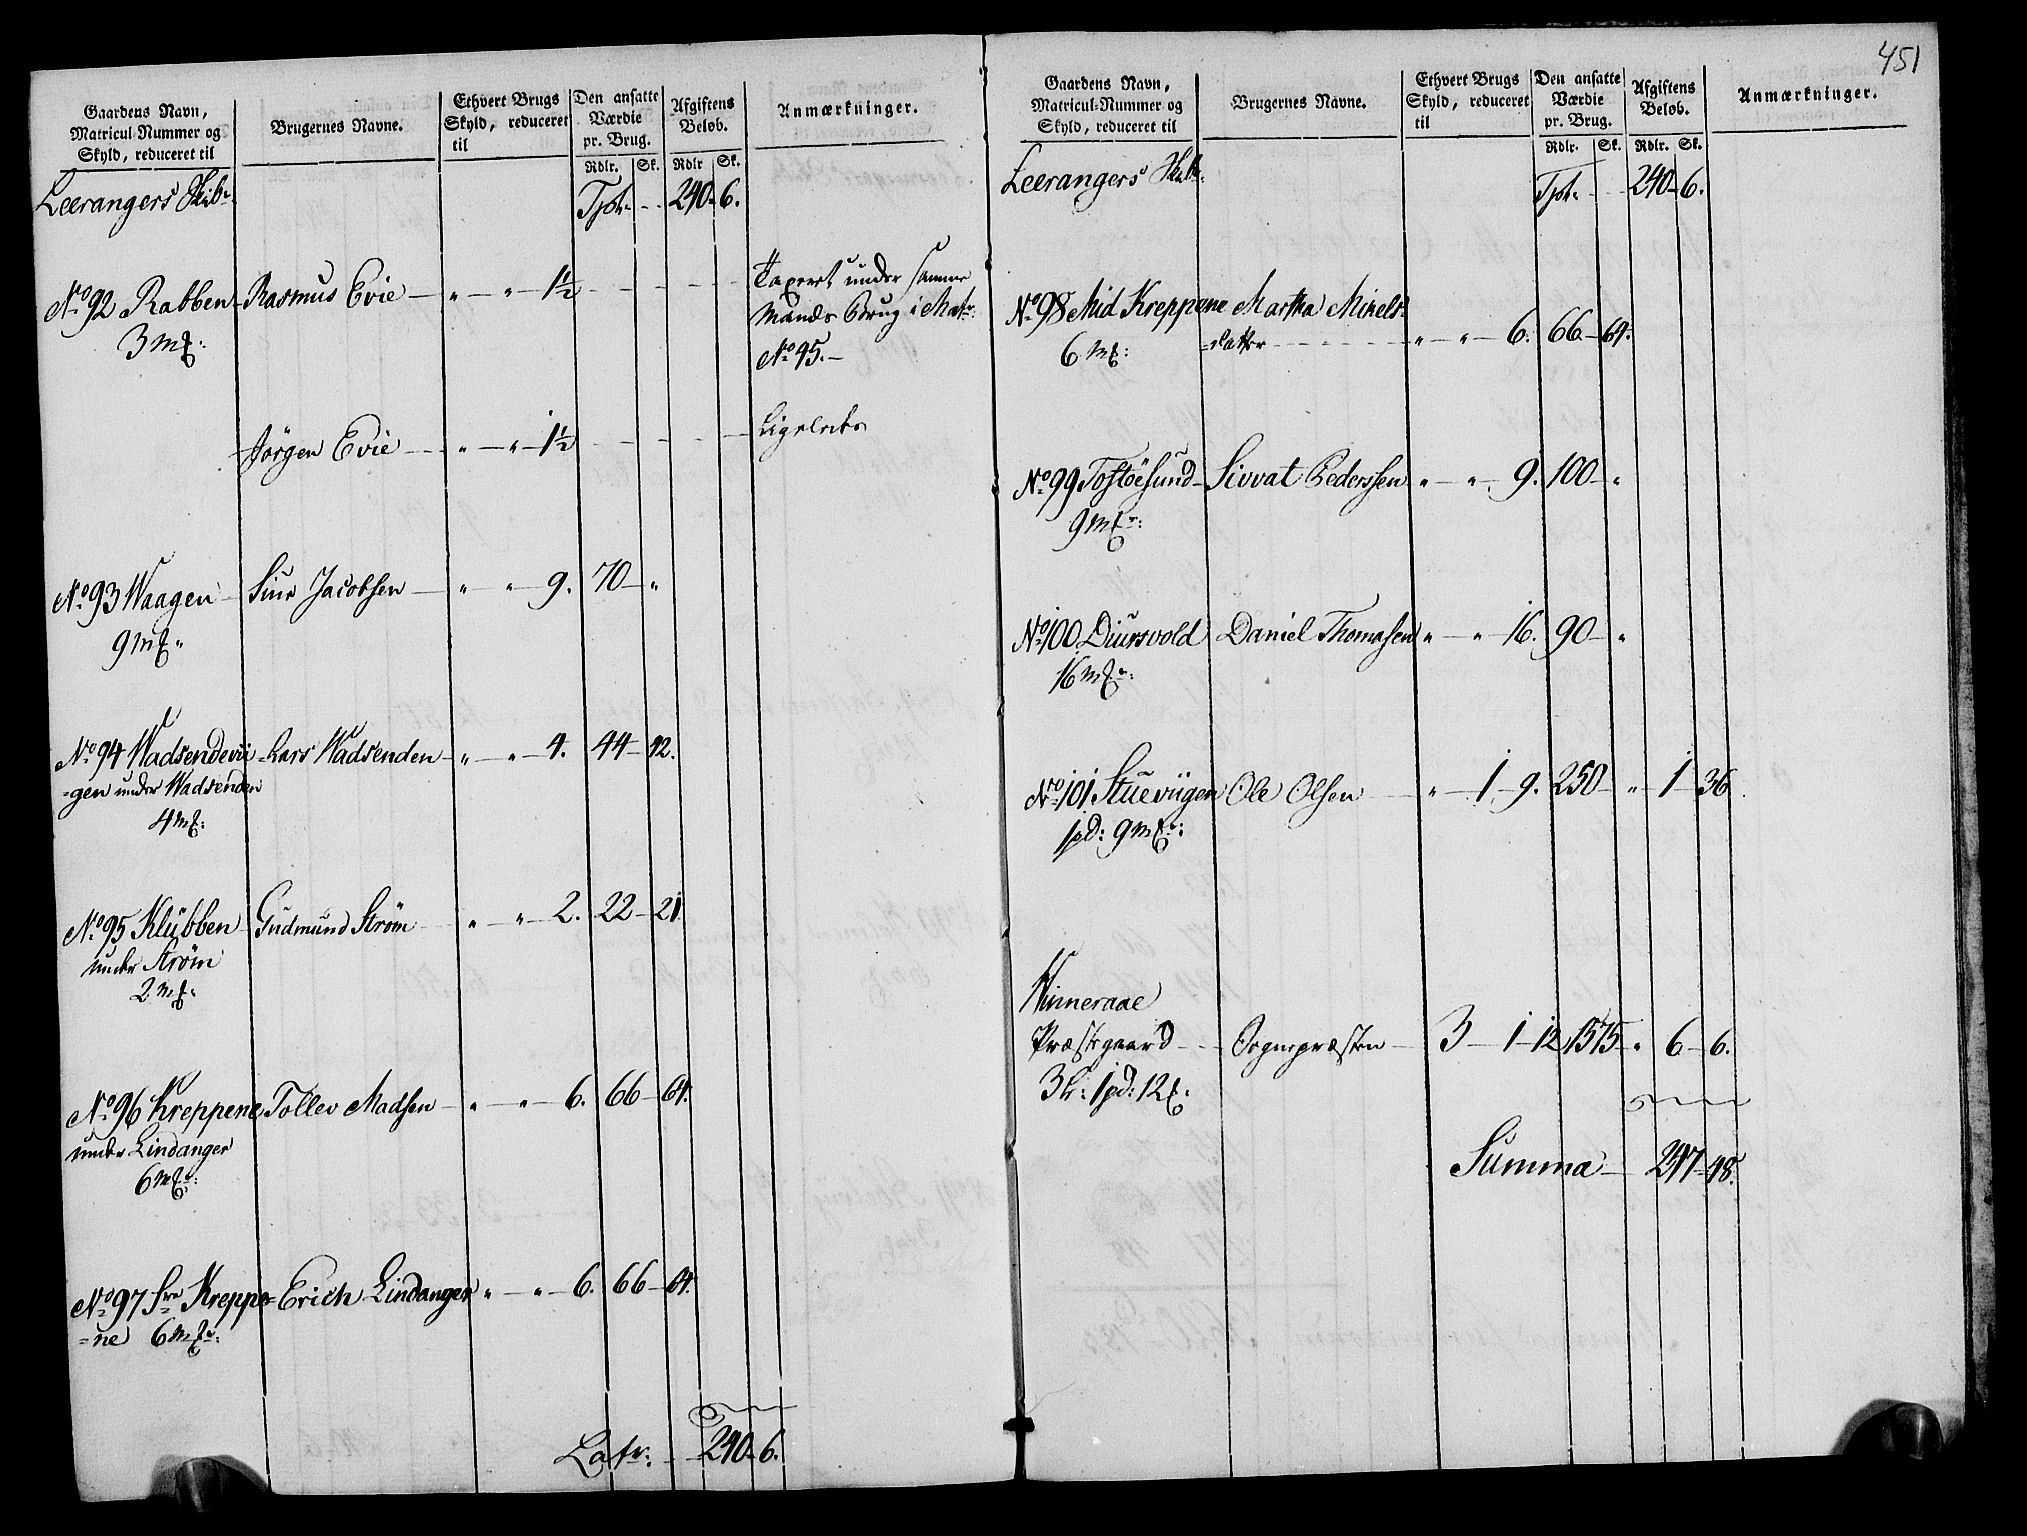 451
Gaardens Navn, Matricul-Nummer og Skyld, reduceret til
Brugernes Navne.
Ethvert Brugs Skyld, reduceret til
Den ansatte Værdie pr. Brug.
Afgiftens Beløb.
Anmærkninger.
Rdlr. Sk. Rdlr Sk.
Leerangers Skibr: Tpt: - - 240 - 6.
No 92 Rabben - Rasmus Evie - " - " - 1½ - - - - - Taxeret under samme
3 m£: Mands Brug i Matr:
No 45. -
Jørgen Evie - - " - " - 1½ - - - - - Ligeledes
No 93 Waagen - Siur Jacobsen - " " - 9. 70 - "
9 m£:
No 94 Wadsendevii - Lars Wadsenden - " - " - 4. 44 - 42.
=gen under Wadsenden
4 m£:
No 95 Klubben - Gudmund Strøm - " " - 2. 22 - 21.
under Strøm
2 m£:
No 96 Kreppene Tollev Madsen - " - " - 6. 66 - 64.
under Lindanger
6 m£:
No 97 Sre Kreppe- Erich Lindanger " - " - 6. 66 - 64.
=ne 6 m£:
Latr: - - 240 - 6.
Gaardens Navn, Matricul-Nummer og Skyld, reduceret til
Brugernes Navne.
Ethvert Brugs Skyld, reduceret til
Den ansatte Værdie pr. Brug.
Afgiftens Beløb.
Anmærkninger.
Rdlr. Sk. Rdlr. Sk.
Leerangers Skibr: Tpt: - - 240 - 6.
No 98 Mid Kreppene Martha Mikels=
6 m£: =datter - - - " - " - 6. 66 - 64.
No 99 Toftøesund - Sivvat Pederssen " - " - 9. 100 - "
9 m£:
No 100 Diursvold Daniel Thomassen " - " - 16. 90 - "
16 m£:
No 101 Stueviigen Ole Olsen - " - 1 - 9. 250 - " 1 - 36.
1 pd: 9 m£:
Præstegaard - - Sognepræsten - 3 - 1 - 12. 1575 - " 6 - 6.
3 L: 1 pd: 12 £:
Summa - 247 - 48.